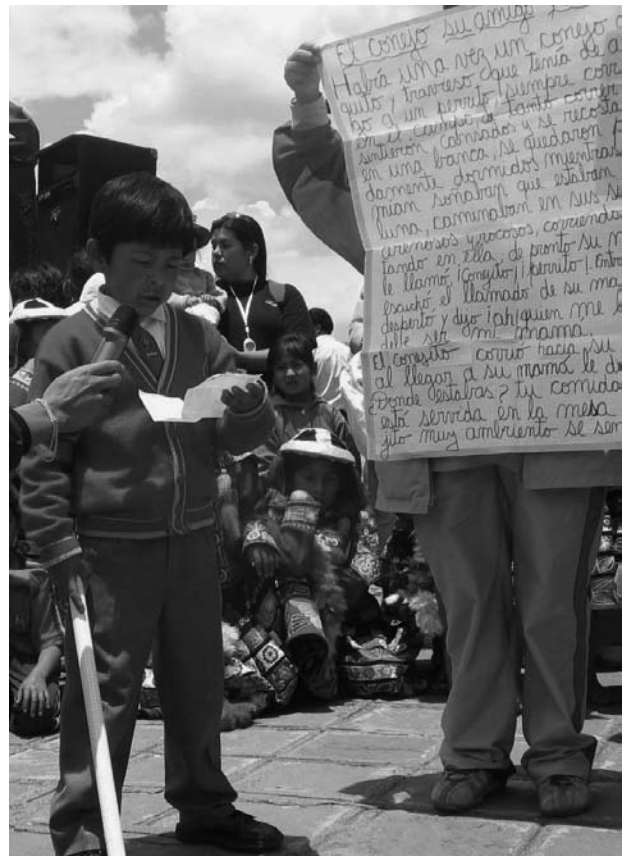 El conejo su amigo
Había una vez un conejo
quito y travieso que tenía de a
go a un serrito siempre corr
en el campo, de tanto correr
sintieron, cansados y se recosta
en una banca, se quedaron
damente dormidos mientras
mian soñaban que estaban
luna, caminaban en sus su
arenosos y rocosos, corriendo
tando en ella, de pronto su m
le llamó ¡Conejito! ¡perrito! Entro
escuchó el llamado de su ma
desperto y dijo ¡ah! quien me
debe ser mi mama.
El conejito corrió hacia su
al llegar a su mamá le di
¿Donde estabas? tu comida
está servida en la mesa
jito muy ambriento se sen